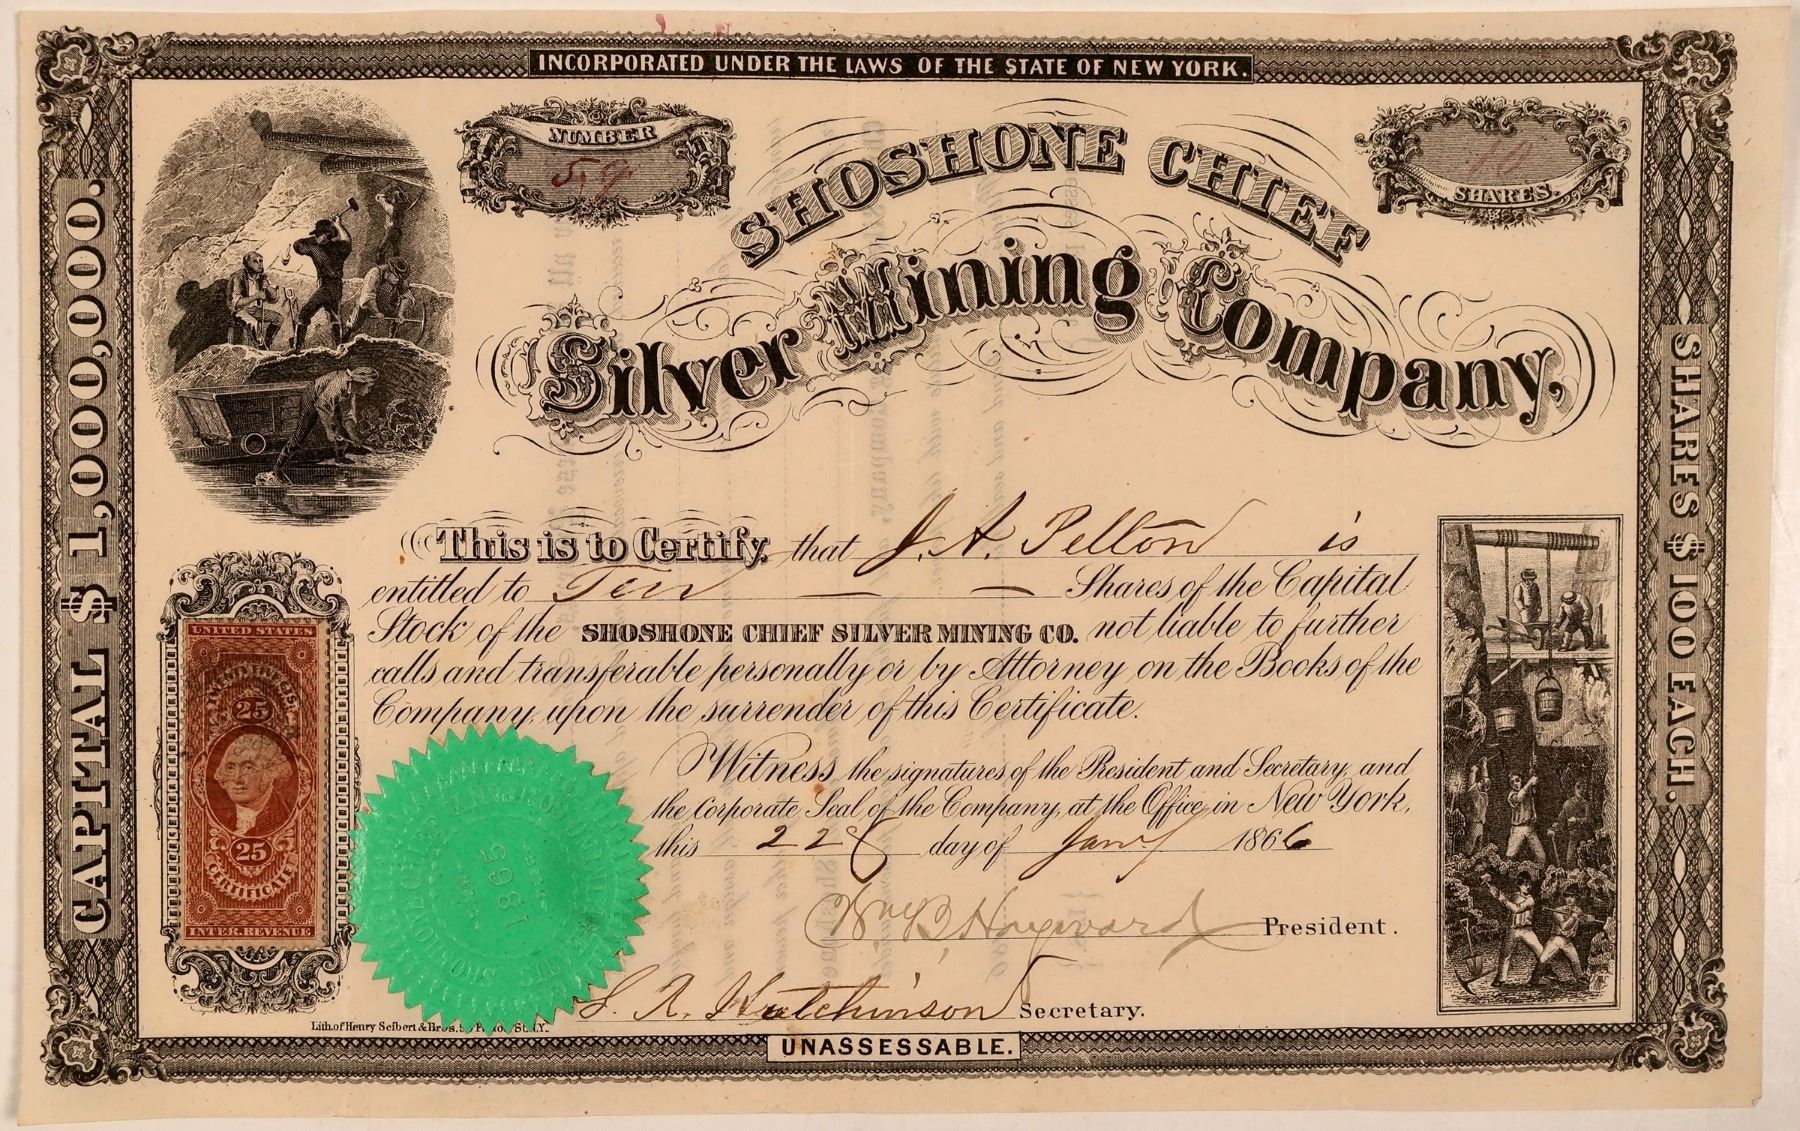 INCORPORATED UNDER THE LAWS OF THE STATE OF NEW YORK.
NUMBER
59
10
SHARES.
SHOSHONE CHIEF
Silver Mining Company,
CAPITAL $1,000,000.
SHARES $100 EACH.
This is to Certify, that J. A. Pelton is
entitled to Ten Shares of the Capital
Stock of the SHOSHONE CHIEF SILVER MINING CO. not liable to further
calls and transferable personally or by Attorney on the Books of the
Company, upon the surrender of this Certificate.
Witness the signatures of the President and Secretary, and
the Corporate Seal of the Company, at the Office in New York,
this 22d day of Jany 1866
Wm B. Hayward President.
S. A. Hutchinson Secretary.
UNITED STATES
25
25
CERTIFICATE
INTER. REVENUE
1865
Lith. of Henry Seibert & Bros.
UNASSESSABLE.